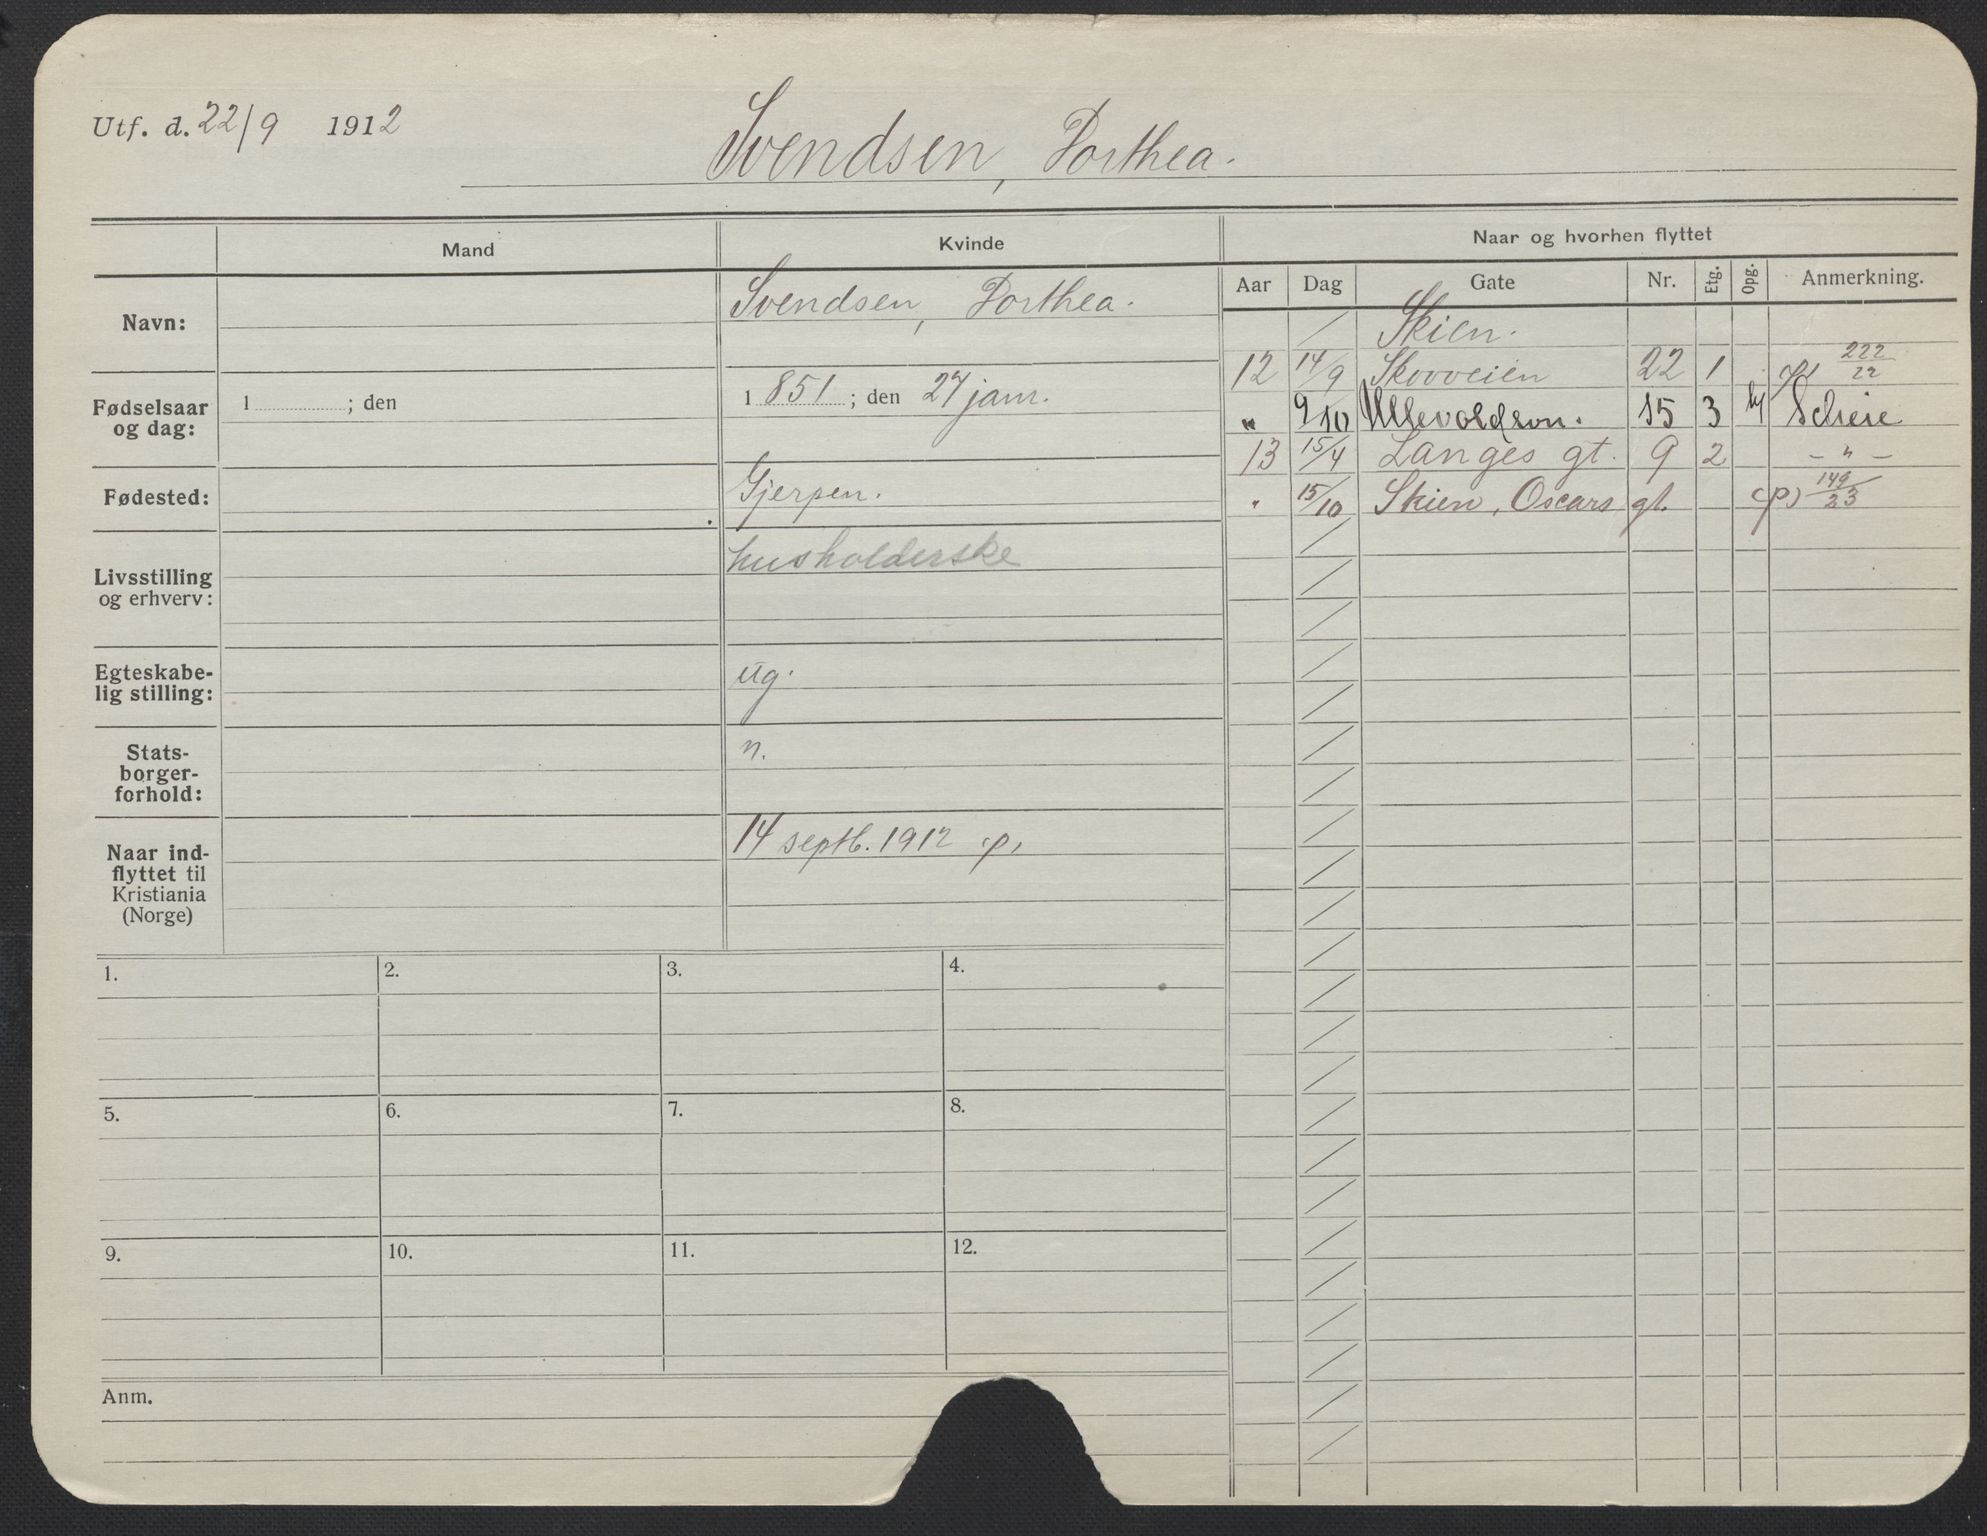 Utf. d. 22/9 1912
Svendsen, Dorthea.
Mand
Kvinde
Naar og hvorhen flyttet
Aar Dag Gate Nr. Etg. Opg. Anmerkning.
Navn:
Svendsen, Dorthea.
Fødselsaar
og dag:
1 ; den
1 851 ; den 27 janr.
Fødested:
Gjerpen.
Livsstilling
og erhverv:
husholderske
Egteskabe-
lig stilling:
ug.
Stats-
borger-
forhold:
n.
Naar ind-
flyttet til
Kristiania
(Norge)
14 septb. 1912 p,
/ Skien.
12 14/9 Skovveien 22 1 222/22
" 9/10 Ullevoldsvn. 15 3 Scheie
13 15/4 Langes gt. 9 2 – " –
" 15/10 Skien, Oscars gt. (p) 149/23
1. 2. 3. 4.
5. 6. 7. 8.
9. 10. 11. 12.
Anm.